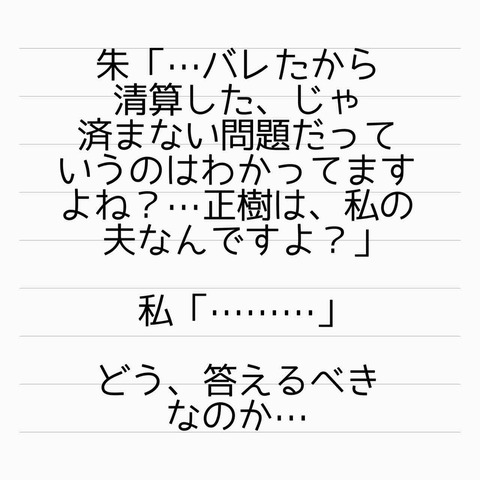 朱「…バレたから
清算した、じゃ
済まない問題だって
いうのはわかってます
よね？…正樹は、私の
夫なんですよ？」
私「………」
どう、答えるべき
なのか…